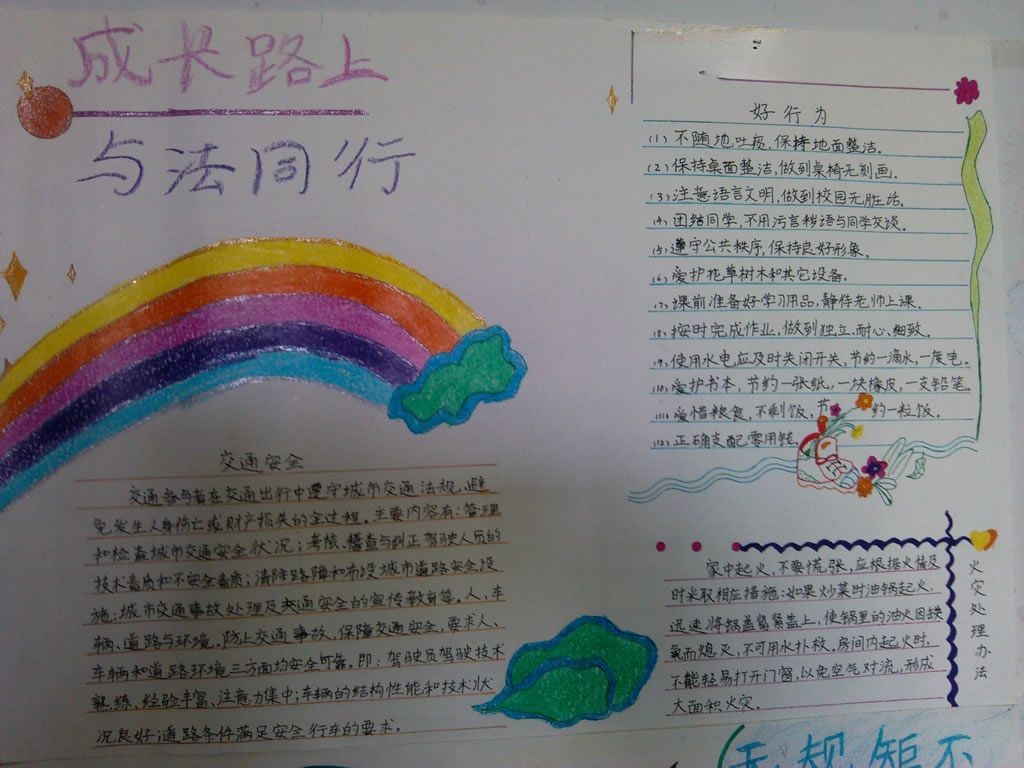 成长路上
与法同行
好行为
(1) 不随地吐痰,保持地面整洁。
(2) 保持桌面整洁,做到桌椅无刻画。
(3) 注意语言文明,做到校园无脏话。
(4) 团结同学,不用污言秽语与同学交谈。
(5) 遵守公共秩序,保持良好形象。
(6) 爱护花草树木和其它设备。
(7) 课前准备好学习用品,静候老师上课。
(8) 按时完成作业,做到独立、耐心、细致。
(9) 使用水电应及时关闭开关,节约一滴水,一度电。
(10) 爱护书本,节约一张纸,一块橡皮,一支铅笔。
(11) 爱惜粮食,不剩饭,节约一粒饭。
(12) 正确支配零用钱
交通安全
交通参与者在交通出行中遵守城市交通法规,避
免发生人身伤亡或财产损失的全过程。主要内容有:管理
和检查城市交通安全状况;考核、稽查与纠正驾驶人员的
技术素质和不安全素质;清除路障和布设城市道路安全设
施;城市交通事故处理及交通安全的宣传教育等。人、车
辆、道路与环境。防止交通事故,保障交通安全,要求人、
车辆和道路环境三方面均安全可靠。即:驾驶员驾驶技术
熟练、经验丰富、注意力集中;车辆的结构性能和技术状
况良好;道路条件满足安全行车的要求。
火灾处理办法
家中起火,不要慌张,应根据火情及
时采取相应措施:如果炒菜时油锅起火,
迅速将锅盖紧紧盖上,使锅里的油火因缺
氧而熄灭,不可用水扑救。房间内起火时,
不能轻易打开门窗,以免空气对流,形成
大面积火灾。
无规矩不